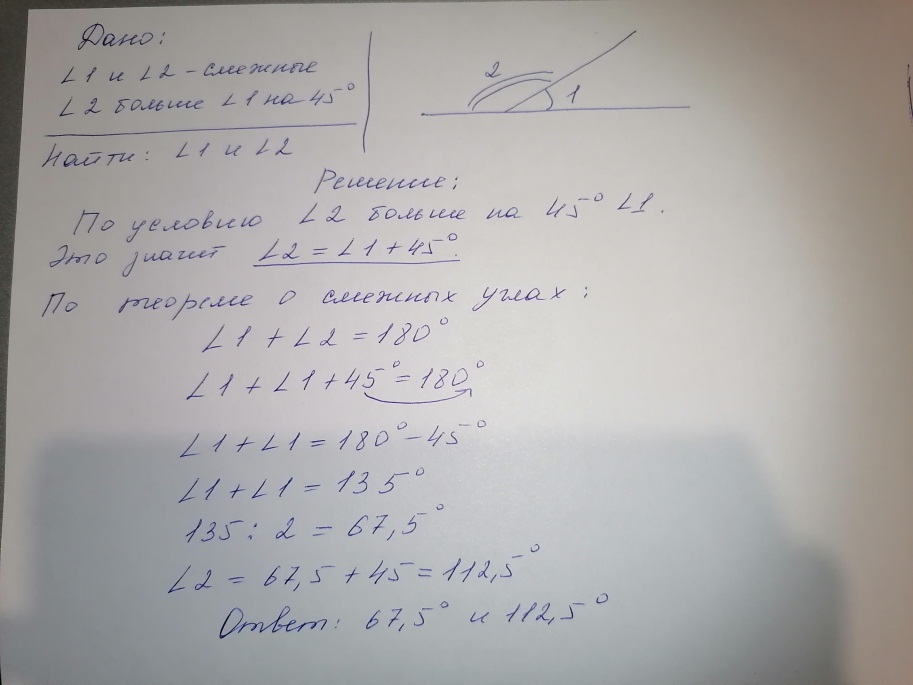 Дано:
∠1 и ∠2 - смежные
∠2 больше ∠1 на 45°
Найти: ∠1 и ∠2
2
1
Решение:
По условию ∠2 больше на 45° ∠1.
Это значит ∠2 = ∠1 + 45°.
По теореме о смежных углах:
∠1 + ∠2 = 180°
∠1 + ∠1 + 45° = 180°
∠1 + ∠1 = 180° - 45°
∠1 + ∠1 = 135°
135 : 2 = 67,5°
∠2 = 67,5 + 45 = 112,5°
Ответ: 67,5° и 112,5°